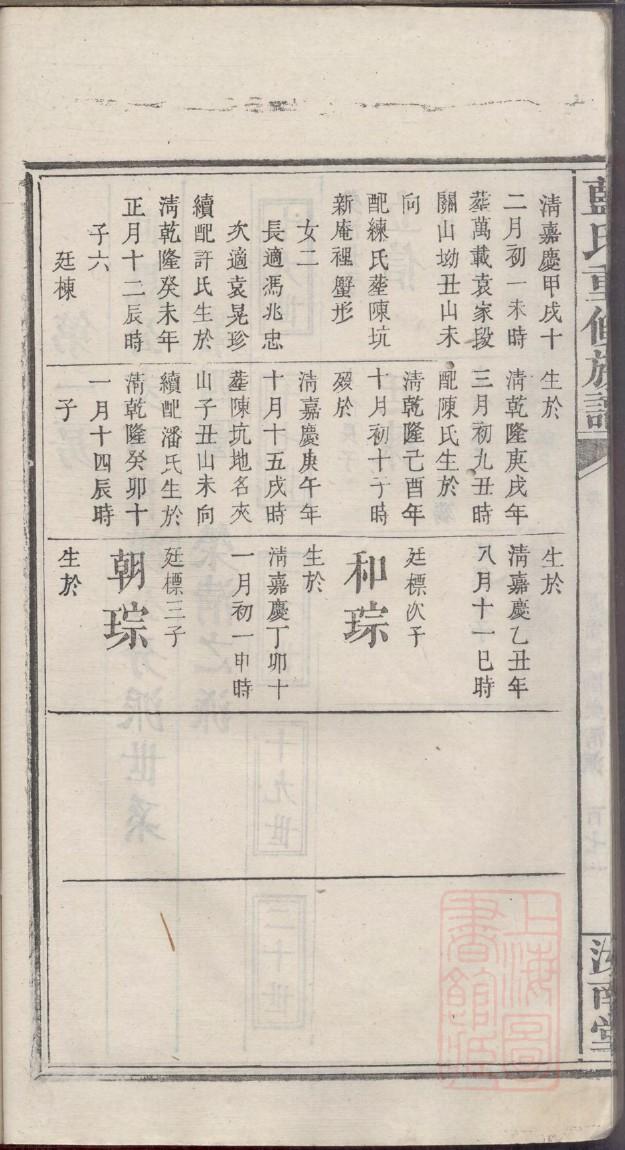 藍氏重修族譜
清嘉慶甲戌十
二月初一未時
塟萬載袁家段
關山坳丑山未
向
配練氏塟陳坑
新庵裡蟹形
女二
長適馮兆忠
次適袁晃珍
續配許氏生於
清乾隆癸未年
正月十二辰時
子六
廷棟
生於
清乾隆庚戌年
三月初九丑時
配陳氏生於
清乾隆己酉年
十月初十子時
歿於
清嘉慶庚午年
十月十五戌時
塟陳坑地名夾
山子丑山未向
續配潘氏生於
清乾隆癸卯十
一月十四辰時
子
生於
清嘉慶乙丑年
八月十一巳時
廷標次子
和琮
生於
清嘉慶丁卯十
一月初一申時
廷標三子
朝琮
生於
汝南堂
上海圖
書館藏